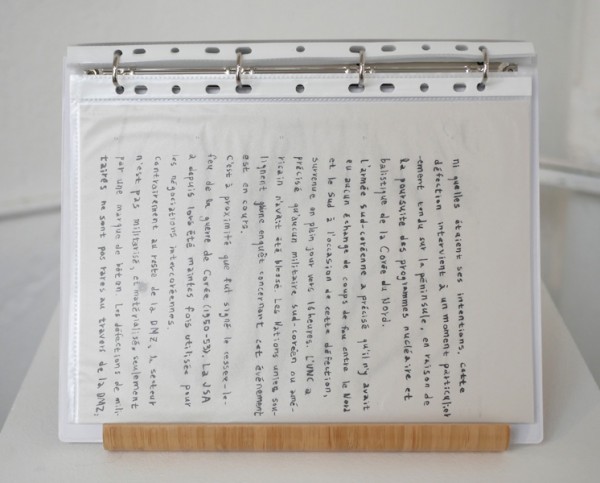 ni quelles étaient ses intentions. cette
défection intervient à un moment particulier
-ement tendu sur la péninsule, en raison de
la poursuite des programmes nucléaire et
balistique de la Corée du Nord.
L'armée sud-coréenne a précisé qu'il n'y avait
eu aucun échange de coups de feu entre le Nord
et le Sud à l'occasion de cette défection,
survenue en plein jour vers 16 heures. L'UNC a
précisé qu'aucun militaire sud-coréen ou amé-
ricain n'avait été blessé. Les Nations unies sou-
lignent qu'une enquête concernant cet événement
est en cours.
C'est à proximité que fut signé le cessez-le-
feu de la guerre de Corée (1950-53). La JSA
a depuis lors été maintes fois utilisée pour
les négociations intercoréennes.
Contrairement au reste de la DMZ, le secteur
n'est pas militarisé, et matérialisé seulement
par une marque de béton. Les défections de mili-
taires ne sont pas rares au travers de la DMZ,